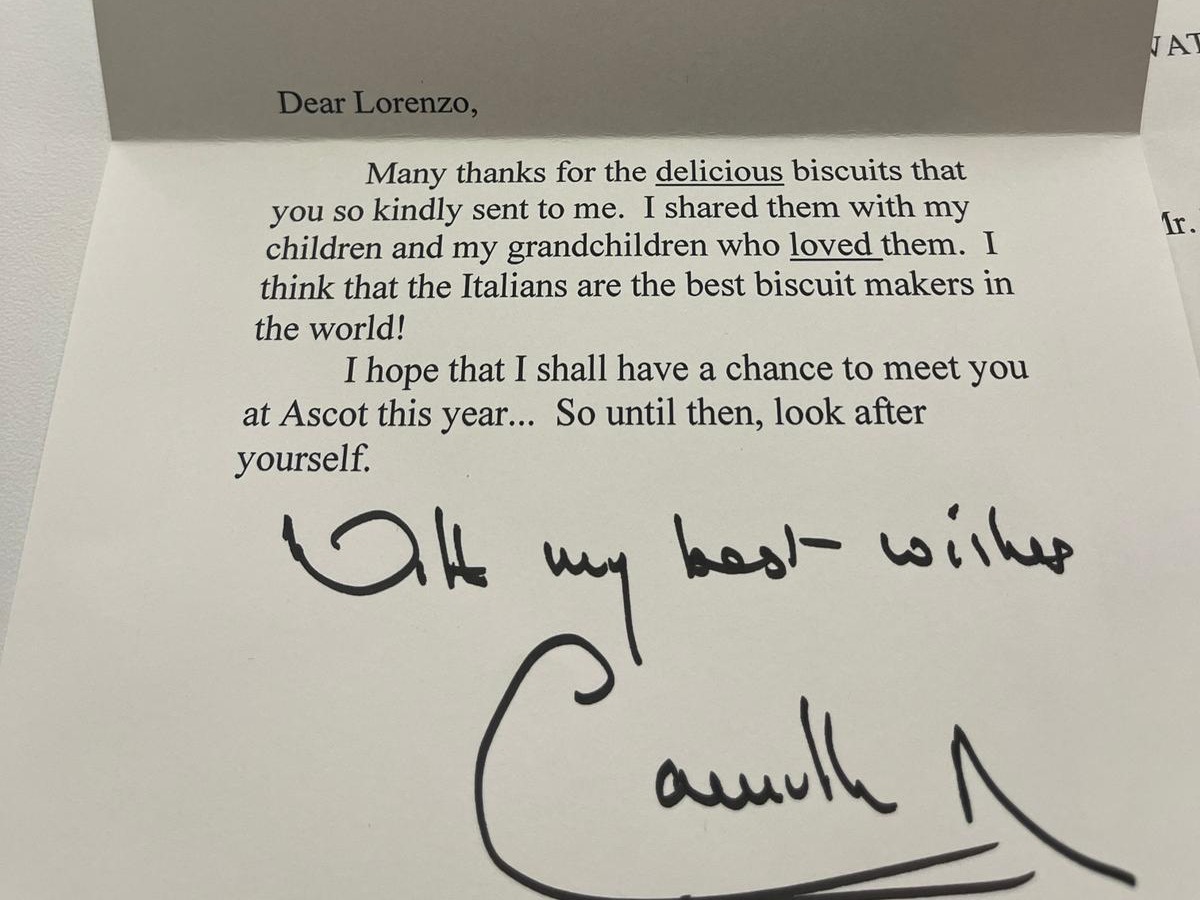 Dear Lorenzo,
Many thanks for the delicious biscuits that
you so kindly sent to me. I shared them with my
children and my grandchildren who loved them. I
think that the Italians are the best biscuit makers in
the world!
I hope that I shall have a chance to meet you
at Ascot this year... So until then, look after
yourself.
With my best wishes
Camilla R
Mr.